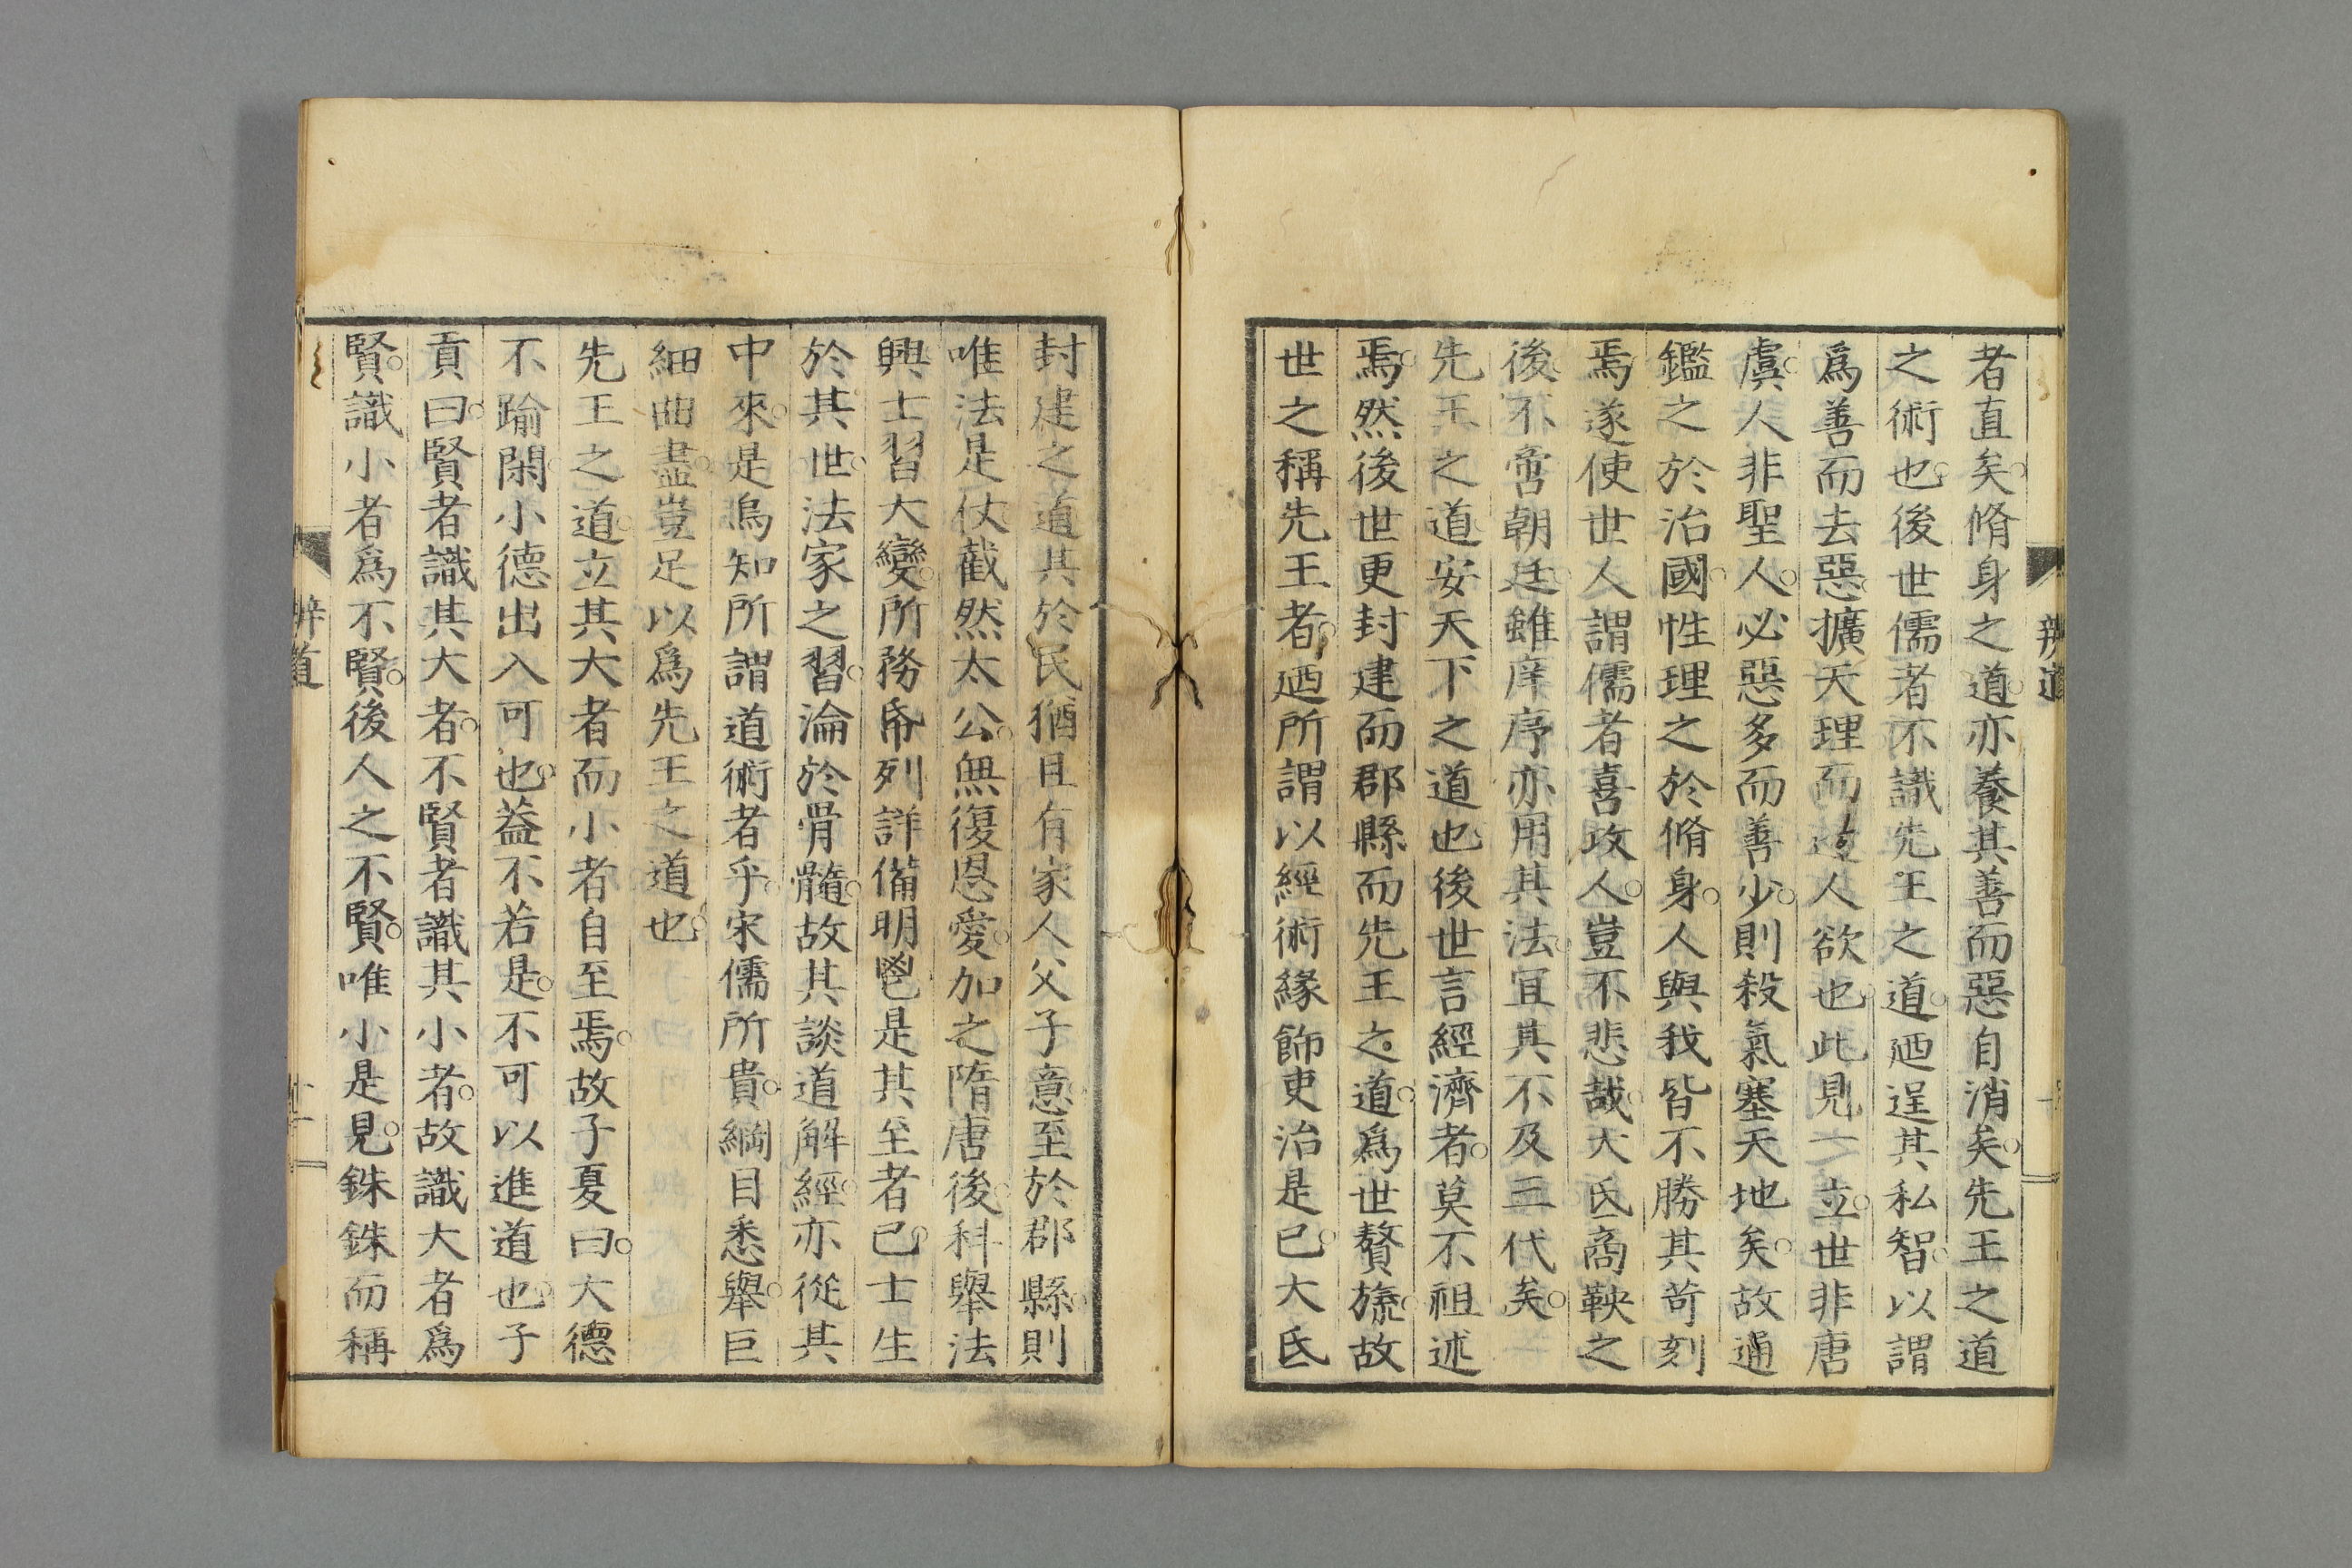 者直矣脩身之道亦養其善而惡自消矣先王之道
之術也後世儒者不識先王之道廼逞其私智以謂
爲善而去惡擴天理而遏人欲也此見一立世非唐
虞人非聖人必惡多而善少則殺氣塞天地矣故通
鑑之於治國性理之於脩身人與我皆不勝其苛刻
焉遂使世人謂儒者喜攻人豈不悲哉大氐商鞅之
後不啻朝廷雖庠序亦用其法宜其不及三代矣
先王之道安天下之道也後世言經濟者莫不祖述
焉然後世更封建而郡縣而先王之道爲世贅旒故
世之稱先王者廼所謂以經術緣飾吏治是已大氐
封建之道其於民猶且有家人父子意至於郡縣則
唯法是仗截然太公無復恩愛加之隋唐後科舉法
興士習大變所務帋列詳備明鬯是其至者已士生
於其世法家之習淪於骨髓故其談道解經亦從其
中來是烏知所謂道術者乎宋儒所貴綱目悉舉巨
細曲盡豈足以爲先王之道也
先王之道立其大者而小者自至焉故子夏曰大德
不踰閑小德出入可也葢不若是不可以進道也子
貢曰賢者識其大者不賢者識其小者故識大者爲
賢識小者爲不賢後人之不賢唯小是見銖銖而稱
辨道